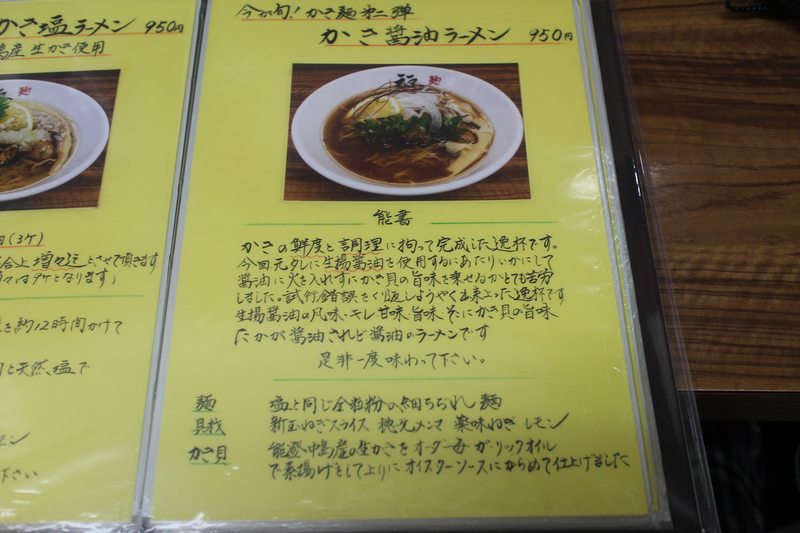 かき塩ラーメン 950円
島産 生かき使用
(3ケ)
合上 増々迄とさせて頂きます
は9ケとなります)
を約12時間かけて
と天然塩で
モン
下さい
今が旬!かき麺第二弾
かき醤油ラーメン 950円
福 麺
能書
かきの鮮度と調理に拘って完成した逸杯です。
今回元タレに生揚醤油を使用するにあたりいかにして
醤油に火を入れずにかき貝の旨味を乗せるかとても苦労
しました。試行錯誤をくり返しようやく出来上った逸杯です
生揚醤油の風味・キレ 甘味、旨味、そこにかき貝の旨味
たかが醤油されど醤油のラーメンです
是非一度味わって下さい。
麺 塩と同じ全粒粉の細ちぢれ麺
具材 新玉ねぎスライス 穂先メンマ 薬味ねぎ レモン
かき貝 能登・中島産の生かきをオーダー毎 ガーリックオイル
で素揚げをして上りにオイスターソースにからめて仕上げました